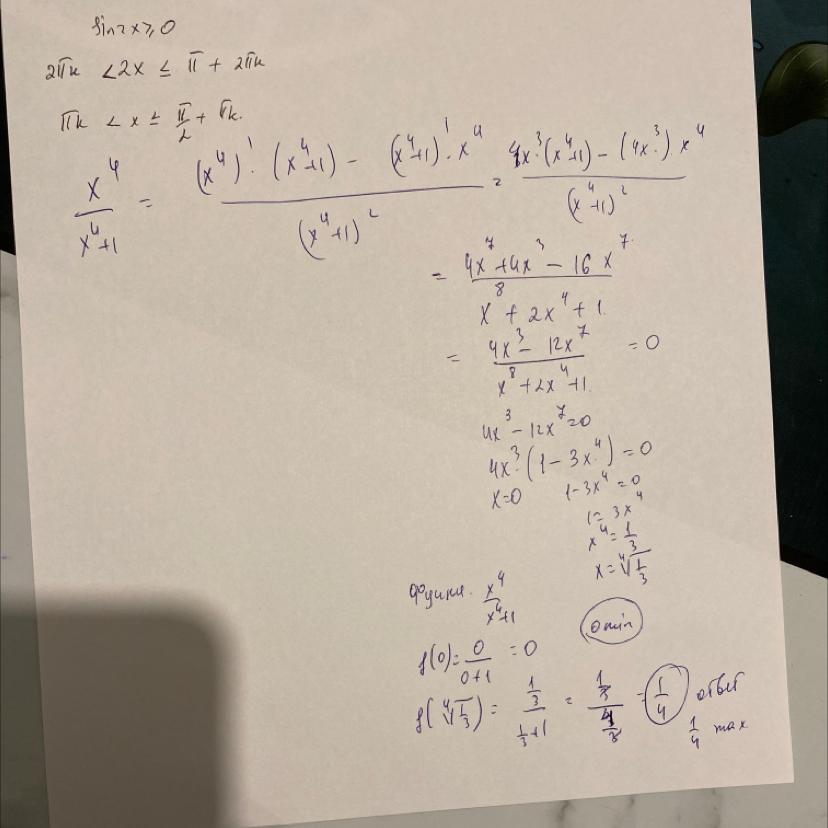 sin2x≥0
2πk < 2x ≤ π + 2πk
πk < x ≤ π/2 + πk.
x⁴/(x⁴+1) = ((x⁴)'·(x⁴+1) − (x⁴+1)'·x⁴)/(x⁴+1)² = (4x³·(x⁴+1) − (4x³)x⁴)/(x⁴+1)²
= (4x⁷+4x³ − 16x⁷)/(x⁸ + 2x⁴ + 1)
= (4x³ − 12x⁷)/(x⁸+2x⁴+1) = 0
4x³ − 12x⁷=0
4x³·(1 − 3x⁴) = 0
x=0 1−3x⁴ = 0
1= 3x⁴
x⁴ = 1/3
x= ⁴√(1/3)
x⁴/(x⁴+1)
0 min
f(0)= 0/(0+1) = 0
f(⁴√(1/3)) = (1/3)/(1/3+1) = (1/3)/(4/3) = 1/4 ответ
1/4 max